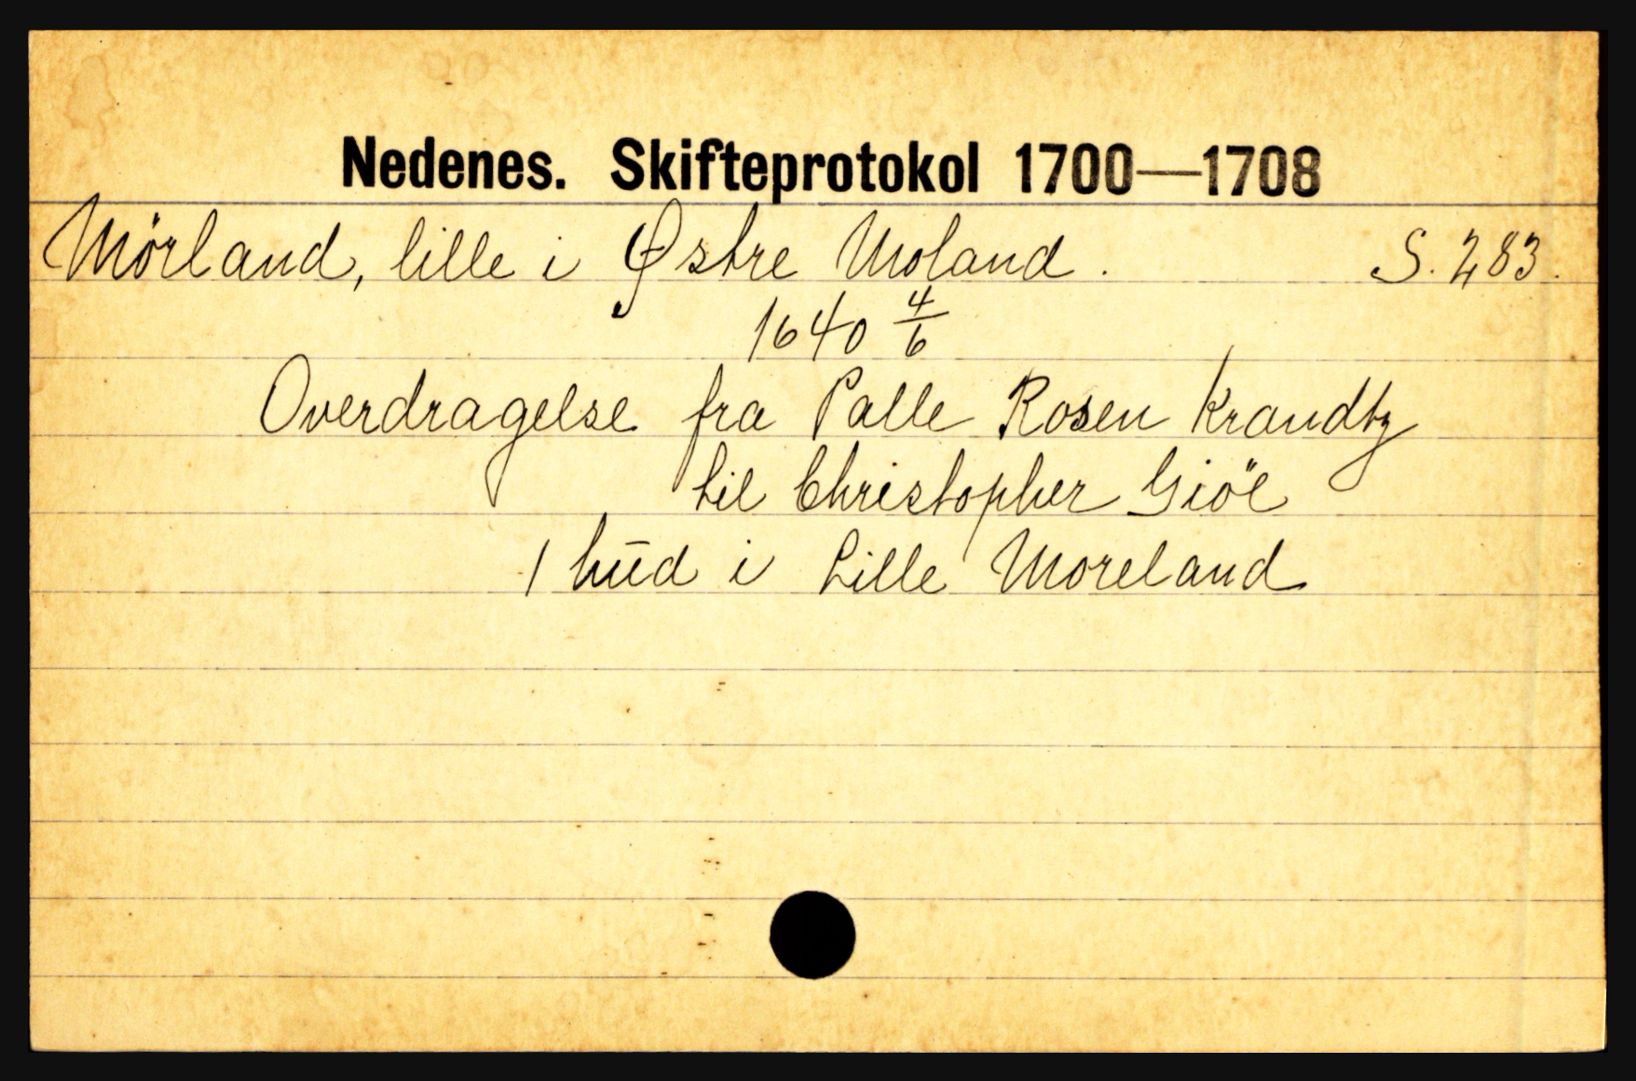 Nedenes. Skifteprotokol 1700—1708
Mörland, lille i Østre Moland. S. 283.
1640 4/6
Overdragelse fra Palle Rosen Krandtz
til Christopher Giöe
1 hūd i Lille Moreland